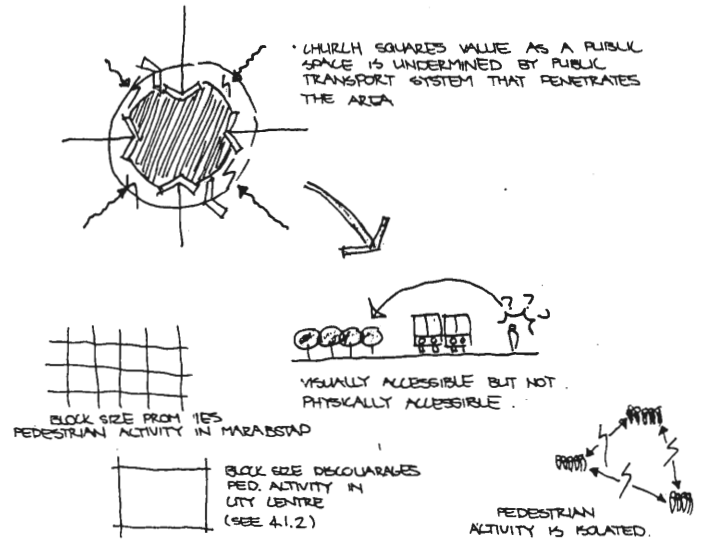 • CHURCH SQUARES VALUE AS A PUBLIC
SPACE IS UNDERMINED BY PUBLIC
TRANSPORT SYSTEM THAT PENETRATES
THE AREA
? ?
?
VISUALLY ACCESSIBLE BUT NOT.
PHYSICALLY ACCESSIBLE.
BLOCK SIZE PROM 1ES
PEDESTRIAN ACTIVITY IN MARABSTAD
BLOCK SIZE DISCOUARAGES
PED. ACTIVITY IN
CITY CENTRE
(SEE 4.1.2)
PEDESTRIAN
ACTIVITY IS ISOLATED.